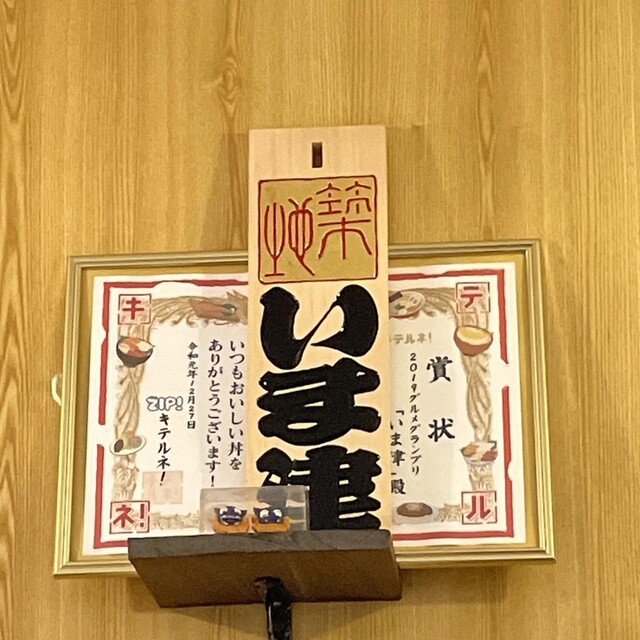 築地
いま津
キテルネ!
賞状
2019グルメグランプリ
「いま津」殿
いつもおいしい丼を
ありがとうございます!
令和元年12月27日
ZIP!
キテルネ!